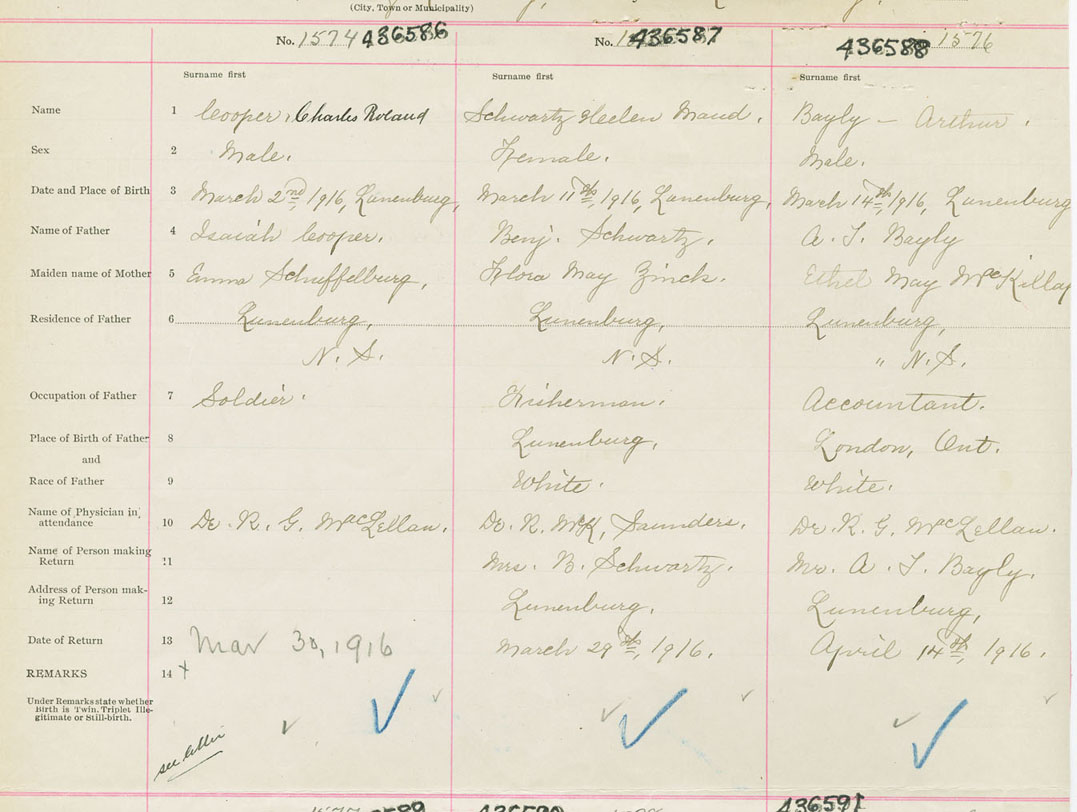 (City, Town or Municipality)
No. 1574 436586 No. 436587 436588 1576
Surname first Surname first Surname first
Name 1 Cooper, Charles Roland Schwartz Helen Maud. Bayly - Arthur.
Sex 2 Male. Female. Male.
Date and Place of Birth 3 March 2nd, 1916, Lunenburg, March 11th, 1916, Lunenburg, March 14th, 1916, Lunenburg
Name of Father 4 Isaiah Cooper. Benj. Schwartz. A. T. Bayly
Maiden name of Mother 5 Emma Schuffelburg, Flora May Zinck. Ethel May
Residence of Father 6 Lunenburg, Lunenburg, Lunenburg,
N. S. N. S. " N. S.
Occupation of Father 7 Soldier. Fisherman. Accountant.
Place of Birth of Father 8 Lunenburg, London, Ont.
and
Race of Father 9 White. White.
Name of Physician in
attendance 10 Dr. R. G. MacLellan. Dr. R. McK, Saunders. Dr. R. G. McLellan.
Name of Person making
Return 11 Mrs. B. Schwartz. Mr. A. T. Bayly.
Address of Person mak-
ing Return 12 Lunenburg. Lunenburg,
Date of Return 13 Mar 30, 1916 March 29th, 1916. April 14th, 1916.
REMARKS 14 +
Under Remarks state whether
Birth is Twin. Triplet Ille-
gitimate or Still-birth.
see letter
436591